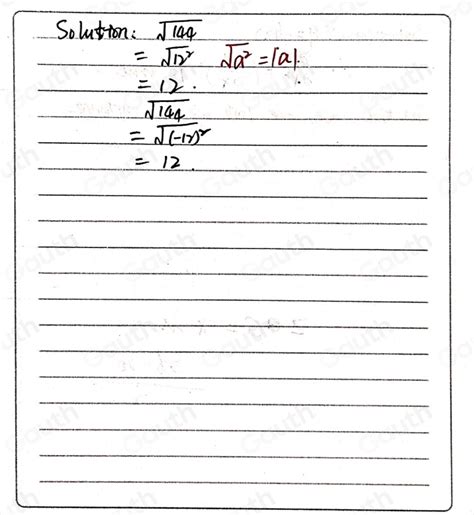 Solution: √144
= √12² √a² = |a|.
= 12.
√144
= √(-12)²
= 12.
Gauth